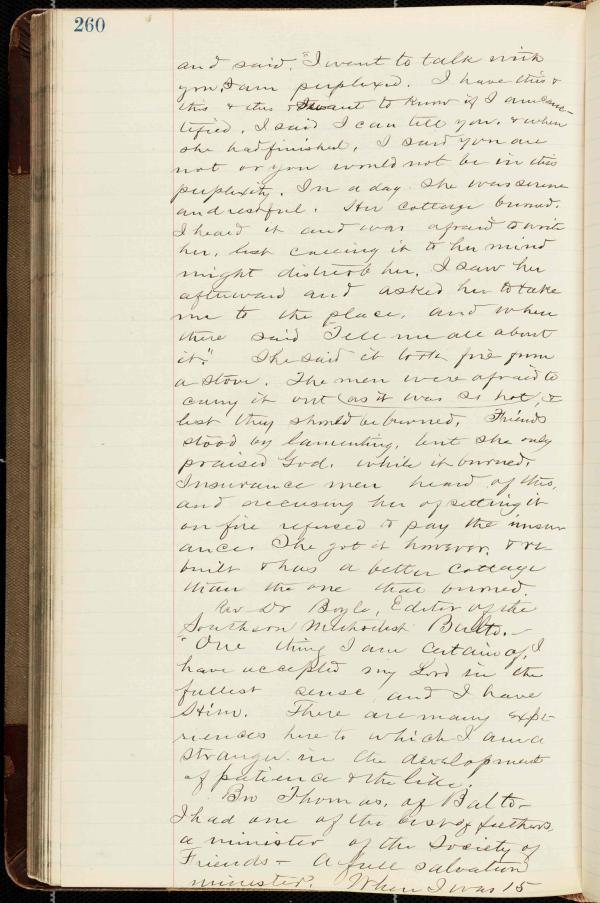 260
and said. "I want to talk with
you, I am perplexed. I have this &
this & this & want to know if I am sanc-
tified. I said I can tell you. & when
she had finished, I said you are
not or you would not be in this
perplexity. In a day she was serene
and restful. Her cottage burned.
I heard it and was afraid to write
her, lest calling it to her mind
might disturb her. I saw her
afterward and asked her to take
me to the place, and when
there said "Tell me all about
it." She said it took fire from
a stove. The men were afraid to
carry it out (as it was so hot, &
lest they should be burned. Friends
stood by lamenting, but she only
praised God. while it burned.
Insurance men heard of this,
and accusing her of setting it
on fire refused to pay the insur
ance. She got it however. & re-
built & has a better cottage
than the one that burned.
Rev Dr Boyle, Editor of the
Southern Methodist Balto.—
"One thing I am certain of, I
have accepted my Lord in the
fullest sense and I have
Him. There are many expe-
riences here to which I am a
stranger in the development
of patience & the like.
Bro Thomas, of Balto—
I had one of the best of fathers,
a minister of the Society of
Friends — A full salvation
minister. When I was 15